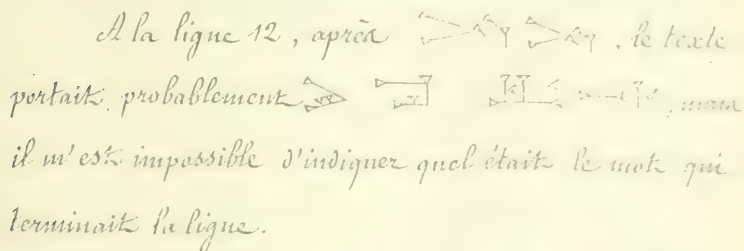 A la ligne 12, après , le texte
portait probablement , mais
il m'est impossible d'indiquer quel était le mot qui
terminait la ligne.